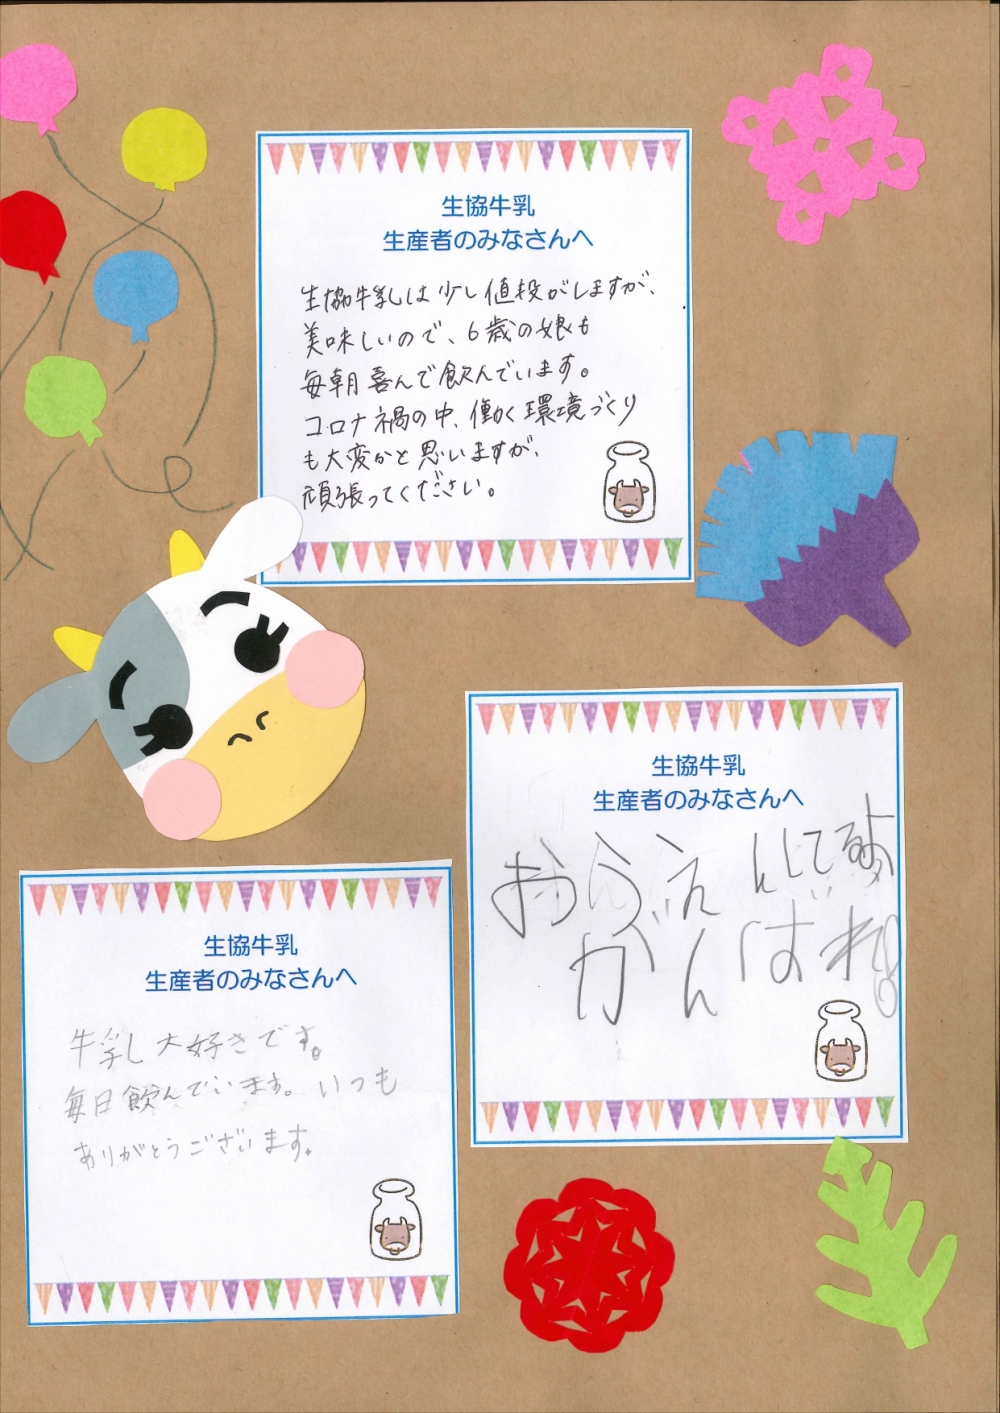 生協牛乳
生産者のみなさんへ
生協牛乳は少し値段がしますが、
美味しいので、6歳の娘も
毎朝喜んで飲んでいます。
コロナ禍の中、働く環境づくり
も大変かと思いますが、
頑張ってください。
生協牛乳
生産者のみなさんへ
おうえんしてるよ
がんばれ
生協牛乳
生産者のみなさんへ
牛乳大好きです。
毎日飲んでいます。いつも
ありがとうございます。